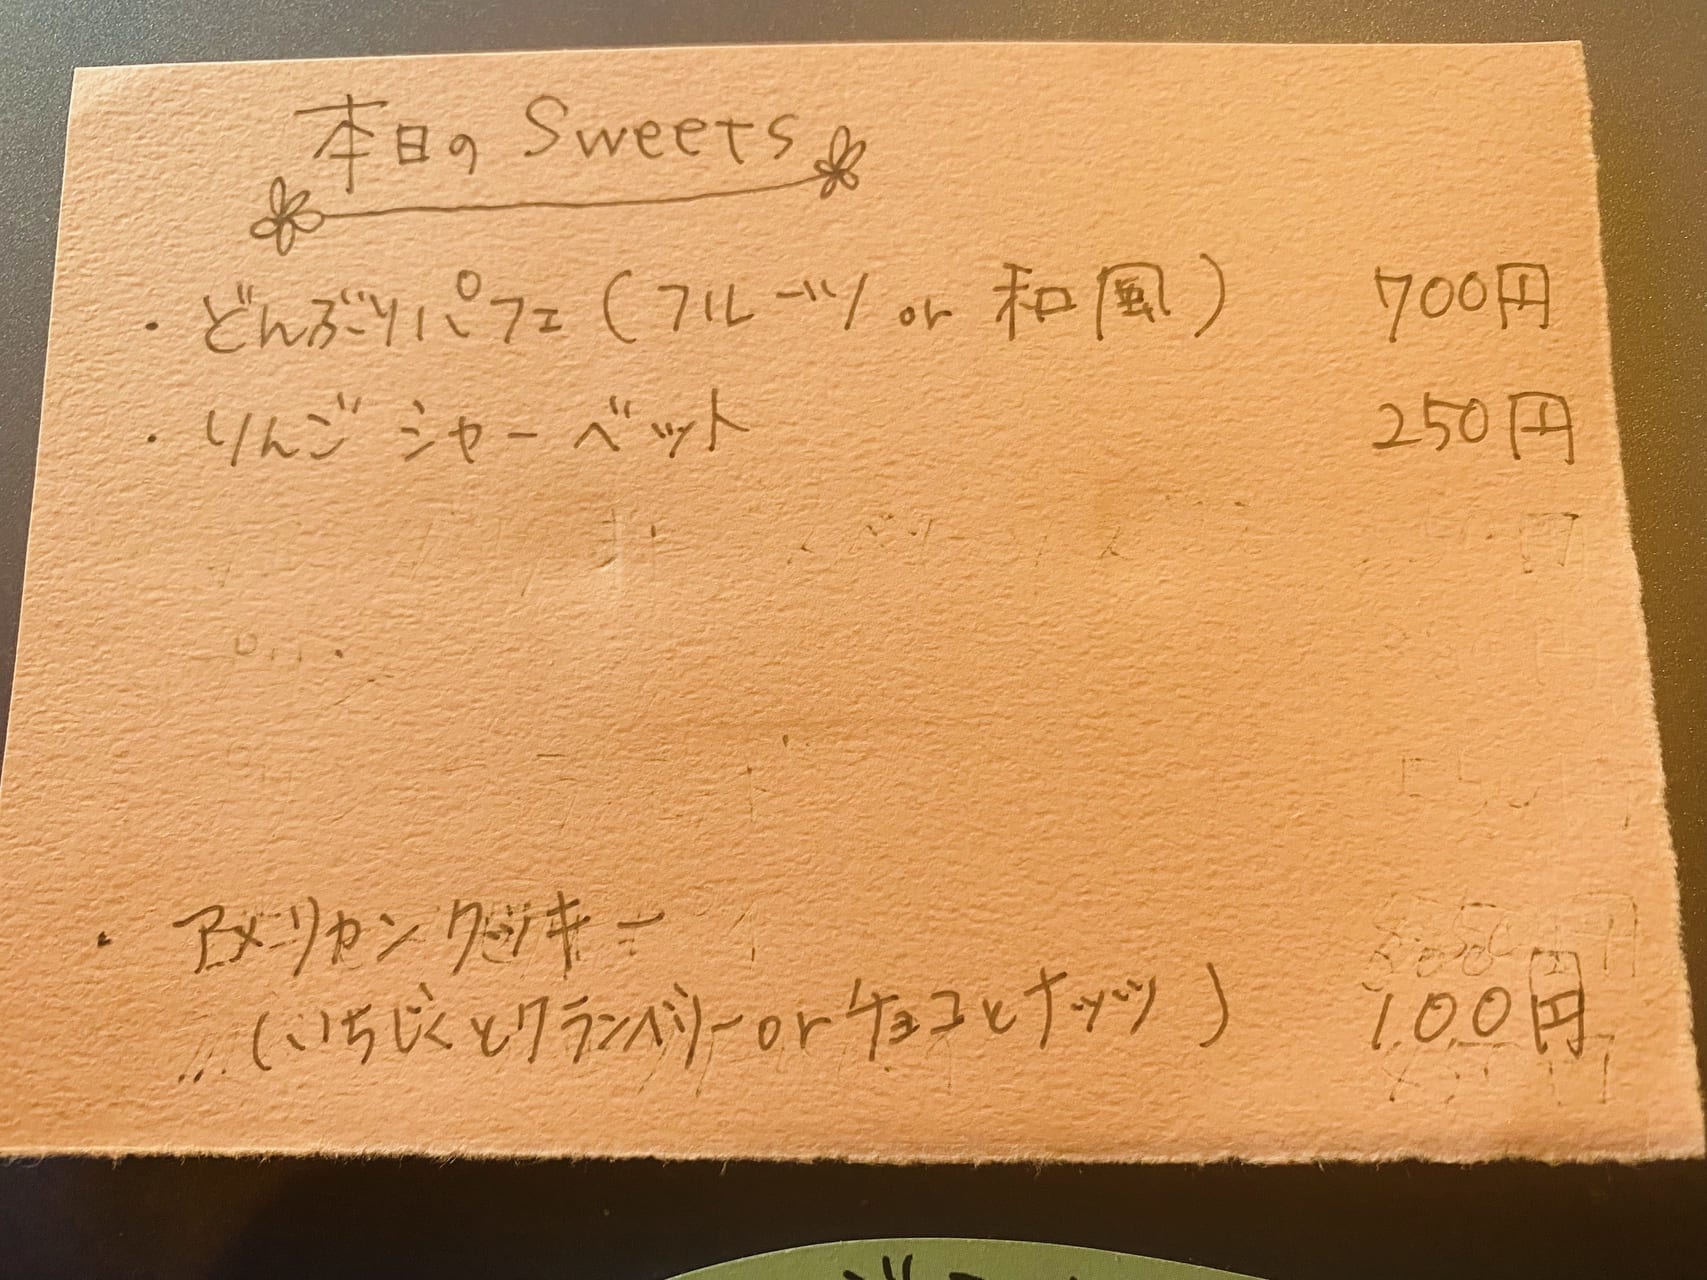 本日の Sweets
・どんぶりパフェ(フルーツ or 和風) 700円
・りんごシャーベット 250円
・アメリカンクッキー
(いちじくとクランベリー or チョコとナッツ) 100円